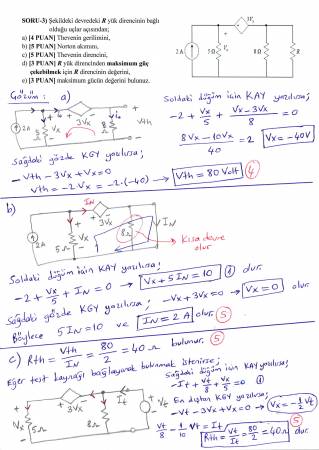 SORU-3) Şekildeki devredeki R yük direncinin bağlı
olduğu uçlar açısından;
a) [4 PUAN] Thevenin gerilimini,
b) [5 PUAN] Norton akımını,
c) [5 PUAN] Thevenin direncini,
d) [3 PUAN] R yük direncinden maksimum güç
çekebilmek için R direncinin değerini,
e) [3 PUAN] maksimum gücün değerini bulunuz.
3Vx
2A
5Ω
Vx
8Ω
R
Çözüm: a)
2A
5Ω
Vx
3Vx
8Ω
Vth
Soldaki düğüm için KAY yazılırsa;
-2 + Vx/5 + (Vx-3Vx)/8 = 0
(8Vx-10Vx)/40 = 2 Vx = -40V
Sağdaki gözde KGY yazılırsa;
-Vth - 3Vx + Vx = 0
Vth = -2Vx = -2.(-40) → Vth = 80 Volt (4)
b)
2A
5Ω
Vx
IN
3Vx
8Ω
IN
Kısa devre
olur.
Soldaki düğüm için KAY yazılırsa;
-2 + Vx/5 + IN = 0 → Vx + 5IN = 10 (1) olur.
Sağdaki gözde KGY yazılırsa; -Vx + 3Vx = 0 → Vx = 0 olur.
Böylece 5IN = 10 ve IN = 2A olur. (5)
c) Rth = Vth/IN = 80/2 = 40Ω bulunur. (5)
Eğer test kaynağı bağlayarak bulunmak istenirse;
Sağdaki düğüm için KAY yazılırsa;
-It + Vt/8 + Vx/5 = 0 (1)
En dıştan KGY yazılırsa;
-Vt - 3Vx + Vx = 0 → Vx = -1/2 Vt
Vt/8 - 1/10 Vt = It
Rth = Vt/It = 80/2 = 40Ω olur. (5)
Vx
5Ω
3Vx
8Ω
It
Vt